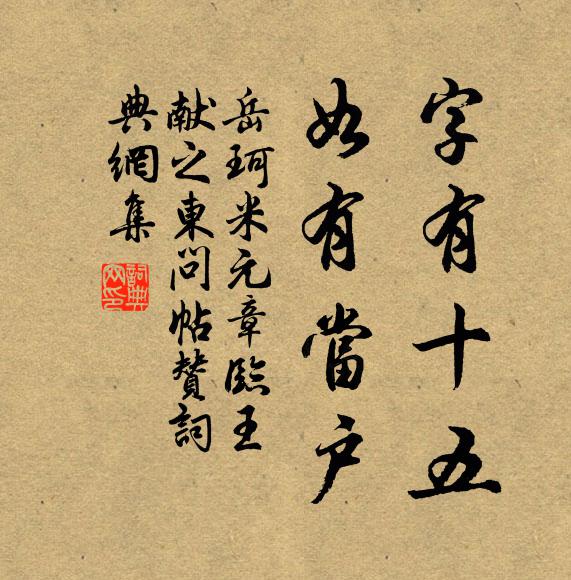 字有十五
如有當戶
岳珂米元章臨王
献之東問帖贊詞
典網集
詞典網印